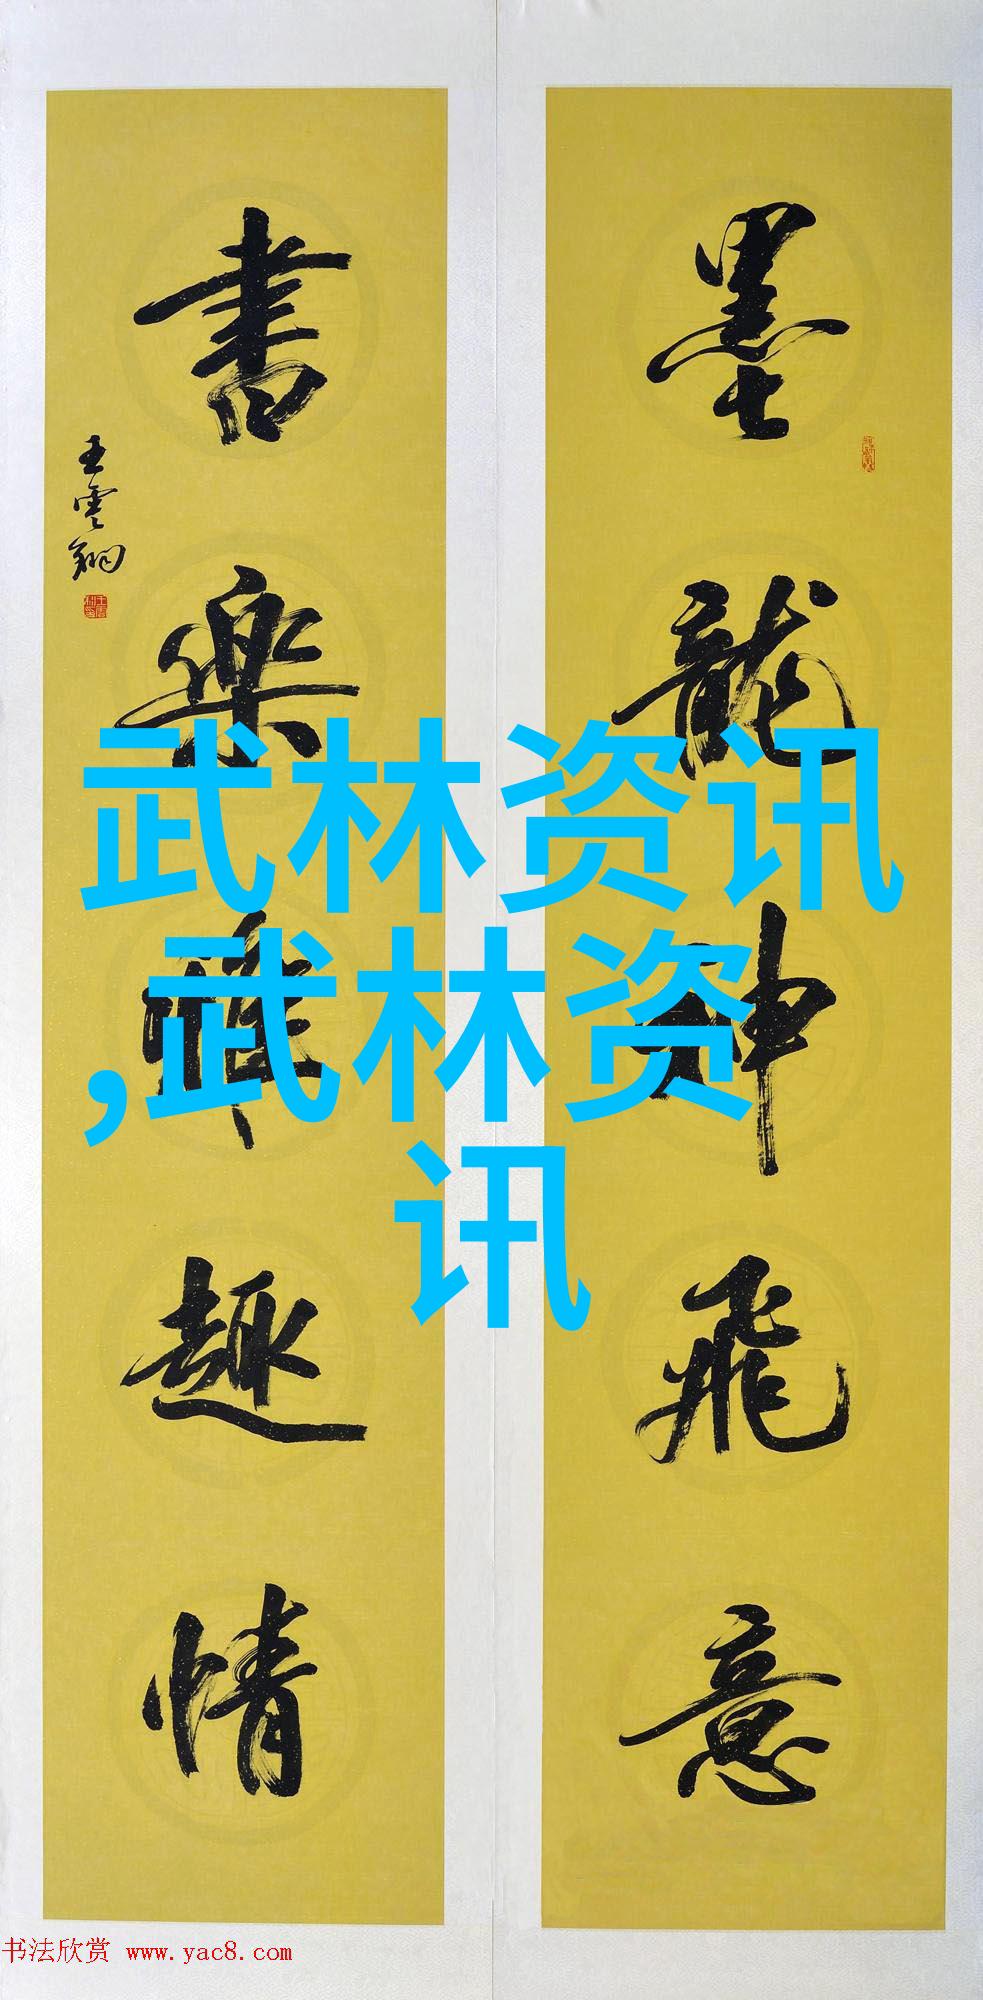 墨龍神飛意
書樂禪趣情
王雲翔
武林资讯
,武林资
讯
书法欣赏 www.yac8.com